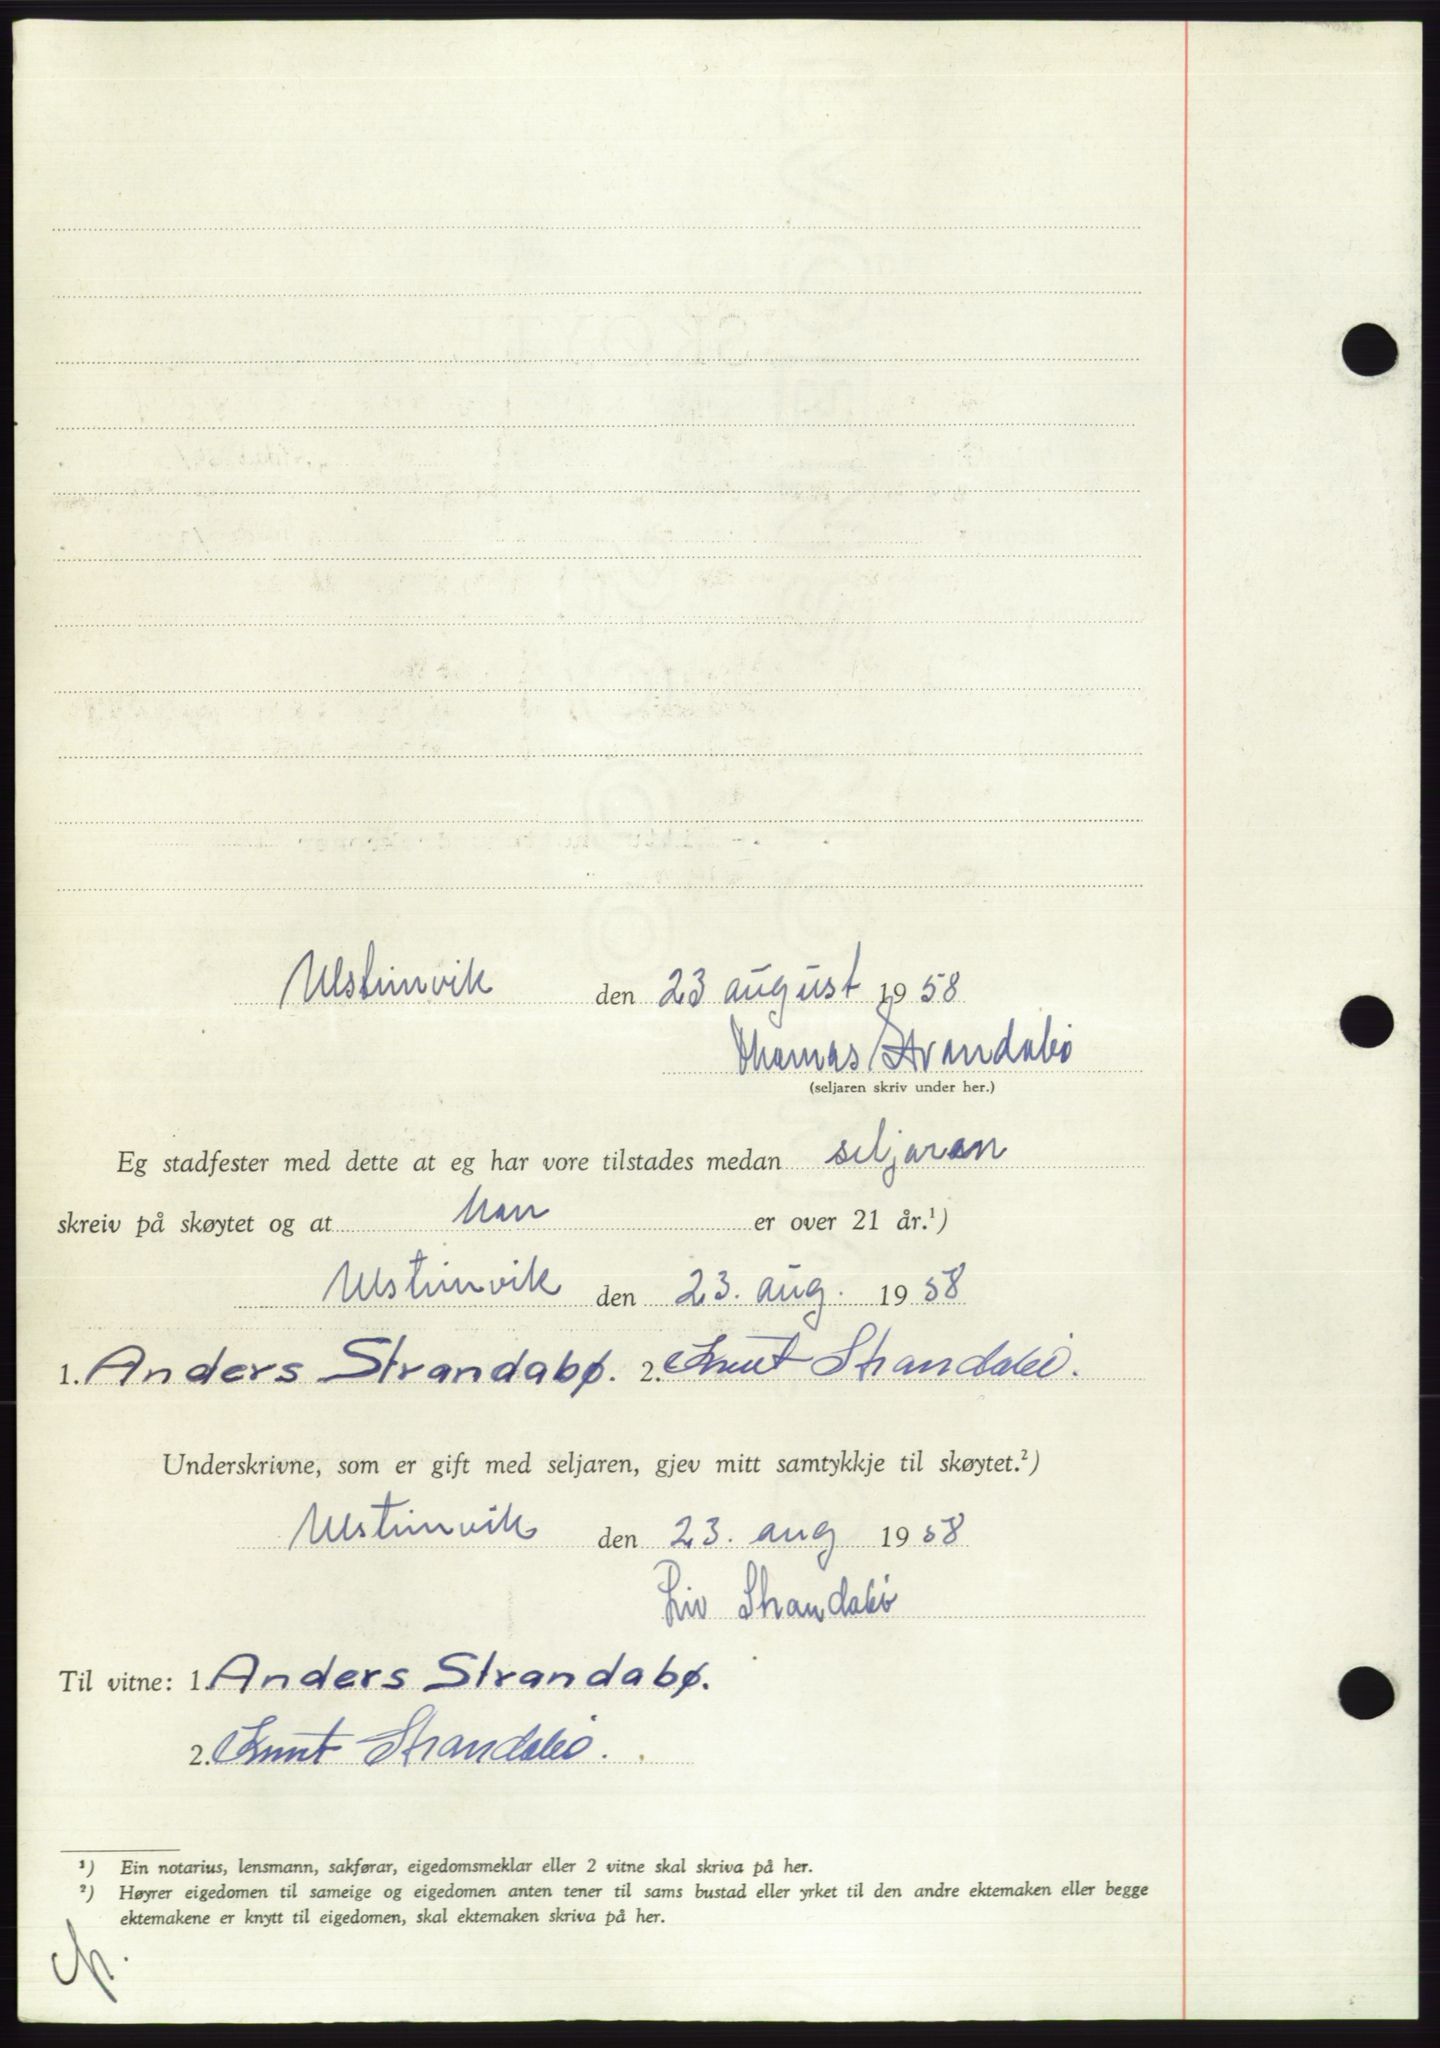 Ulsteinvik den 23 august 1958
Thomas Strandabø
(seljaren skriv under her.)
Eg stadfester med dette at eg har vore tilstades medan seljaren
skreiv på skøytet og at han er over 21 år.¹)
Ulsteinvik den 23. aug. 1958
1. Anders Strandabø. 2. Knut Strandabø.
Underskrivne, som er gift med seljaren, gjev mitt samtykkje til skøytet.²)
Ulsteinvik den 23. aug 1958
Liv Strandabø
Til vitne: 1. Anders Strandabø.
2. Knut Strandabø.
¹) Ein notarius, lensmann, sakførar, eigedomsmeklar eller 2 vitne skal skriva på her.
²) Høyrer eigedomen til sameige og eigedomen anten tener til sams bustad eller yrket til den andre ektemaken eller begge
ektemakene er knytt til eigedomen, skal ektemaken skriva på her.